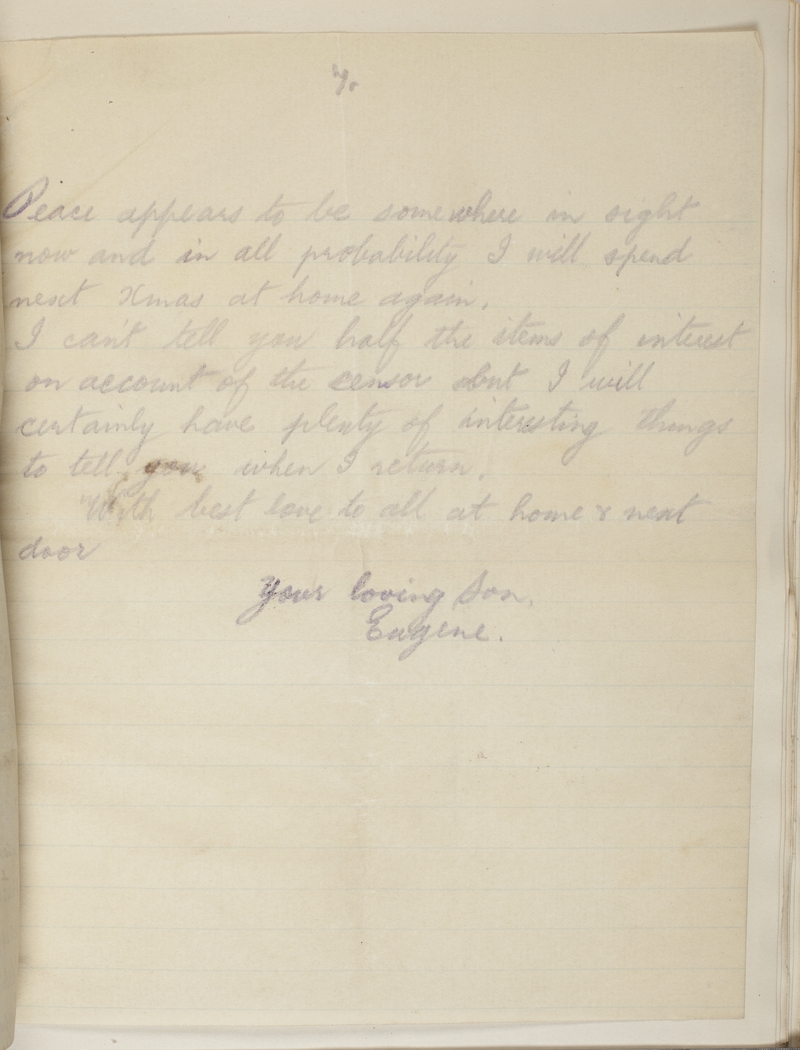 Peace appears to be somewhere in sight
now and in all probability I will spend
next Xmas at home again.
I can't tell you half the items of interest
on account of the censor but I will
certainly have plenty of interesting things
to tell you when I return.
With best love to all at home & next
door
Your loving Son,
Eugene.